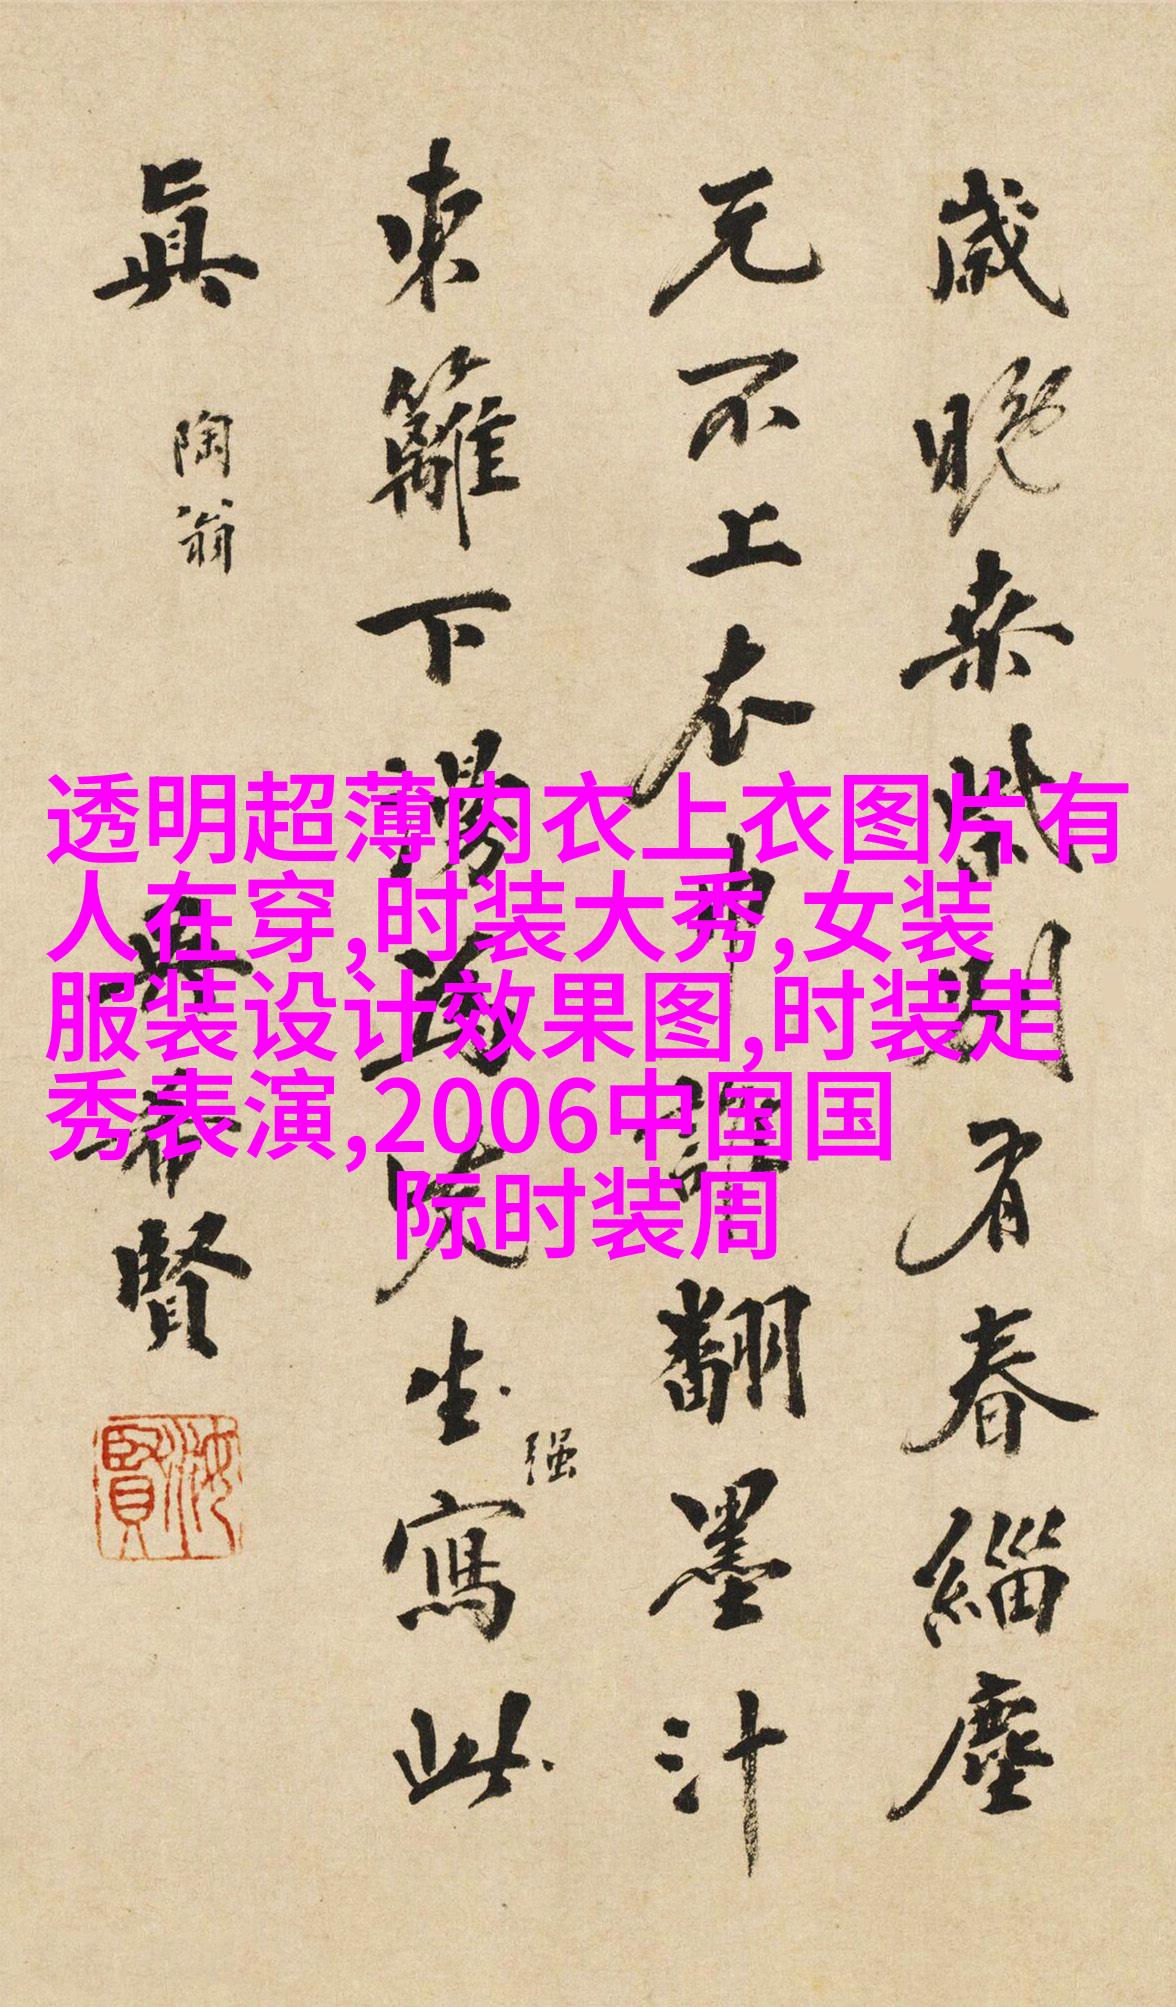 歲晚朱門別有春緇塵
元不上衣巾誰翻墨汁
東籬下漫為先生寫此
强
真
陶翁
吳希賢
賢
透明超薄内衣上衣图片有
人在穿,时装大秀,女装
服装设计效果图,时装走
秀表演,2006中国国
际时装周